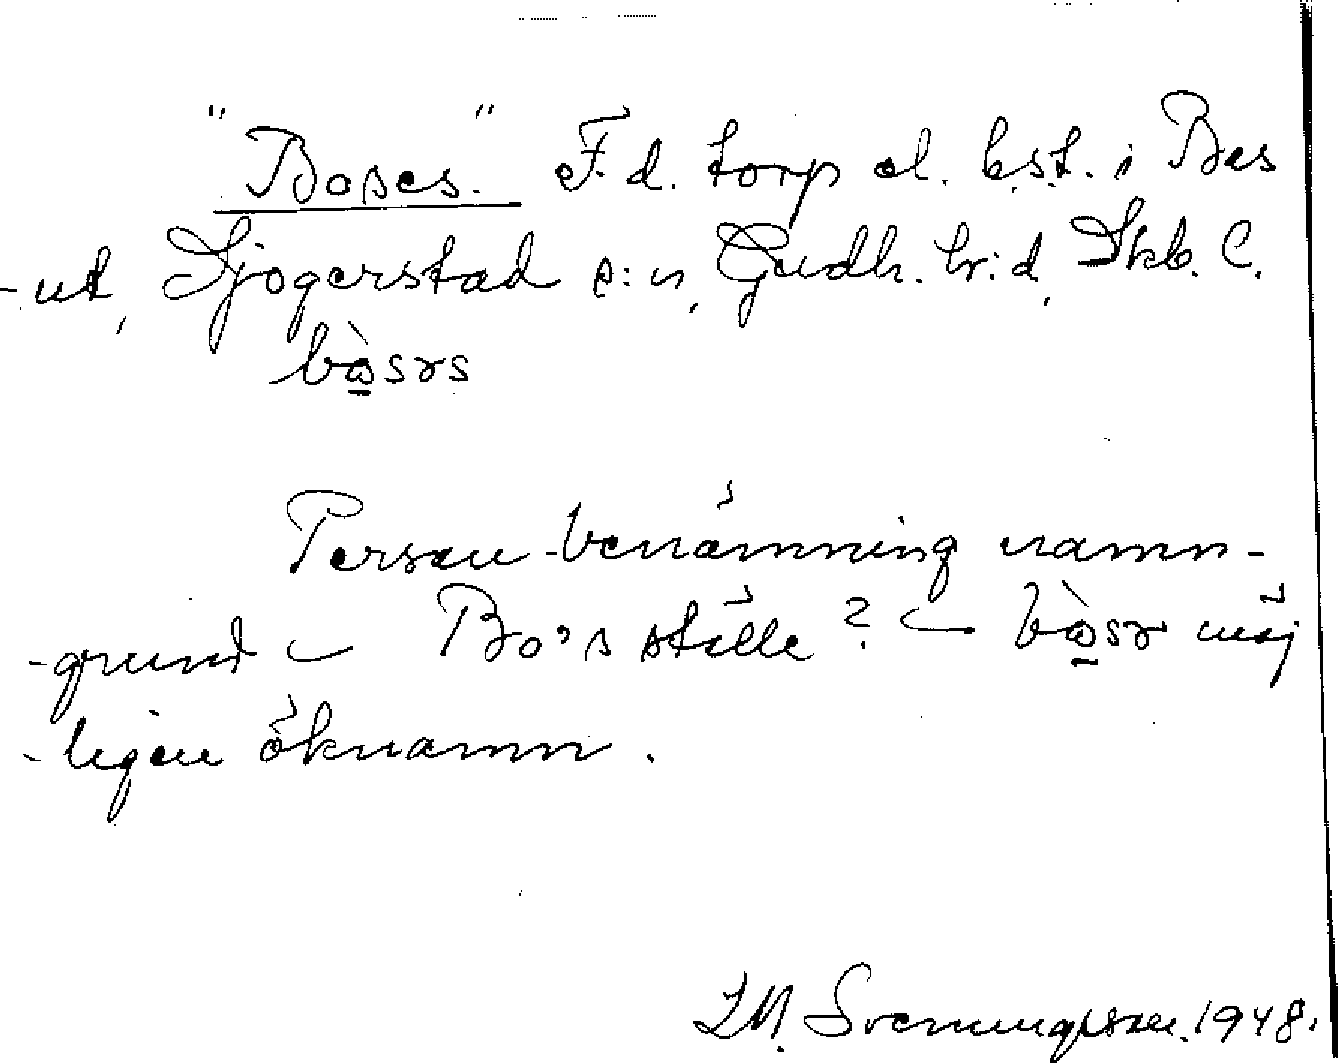 "Boses." F.d. torp el. b.st. i Bes
-ut, Sjogerstad s:n, Gudh. hr:d, Skb. C.
bòsɤs
Person-benämning namn-
-grund ⌣ Bo's ställe? ⌣ bòsɤ möj
-ligen öknamn.
Svenungsson. 1948.